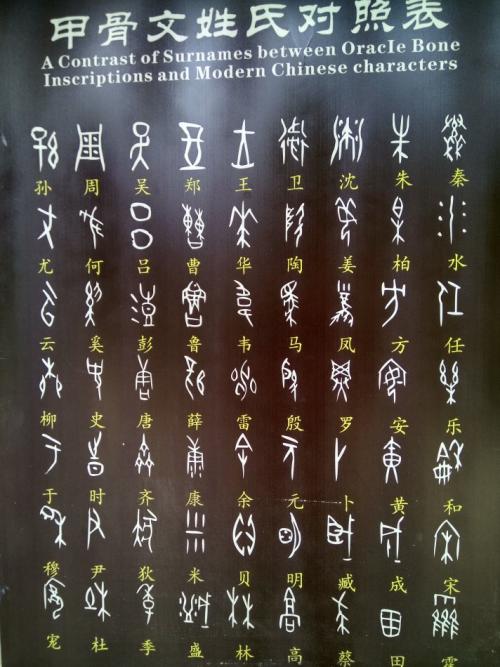 甲骨文姓氏对照表
A Contrast of Surnames between OracIe Bone
Inscriptions and Modern Chinese characters
孙 周 吴 郑 王 卫 沈 朱 秦
尤 何 吕 曹 华 陶 姜 柏 水
云 奚 彭 鲁 韦 马 凤 方 任
柳 史 唐 薛 雷 殷 罗 安 乐
于 时 齐 康 余 元 卜 黄 和
穆 尹 狄 米 贝 明 臧 成 宋
宠 杜 季 盛 林 高 蔡 田